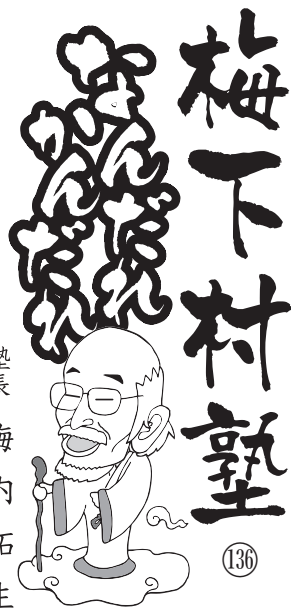 梅下村塾
136
なんだれ
かんだれ
塾長 梅内拓生